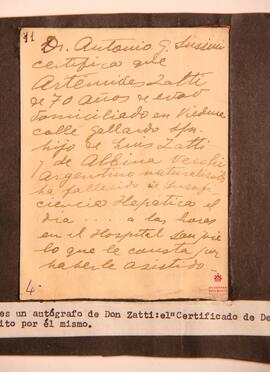 11
Dr. Antonio G. Sussini
certifica que
Artémides Zatti
de 70 años de edad
domiciliado en Viedma
calle Gallardo S/n.
hijo de Luis Zatti
y de Albina Vecchi
Argentino naturalizado
ha fallecido de Insufi
ciencia Hepática el
día . . . . a las horas
en el Hospital San José
lo que le consta por
haberle asistido.
4.
es un autógrafo de Don Zatti:el"Certificado de De
ito por él mismo.